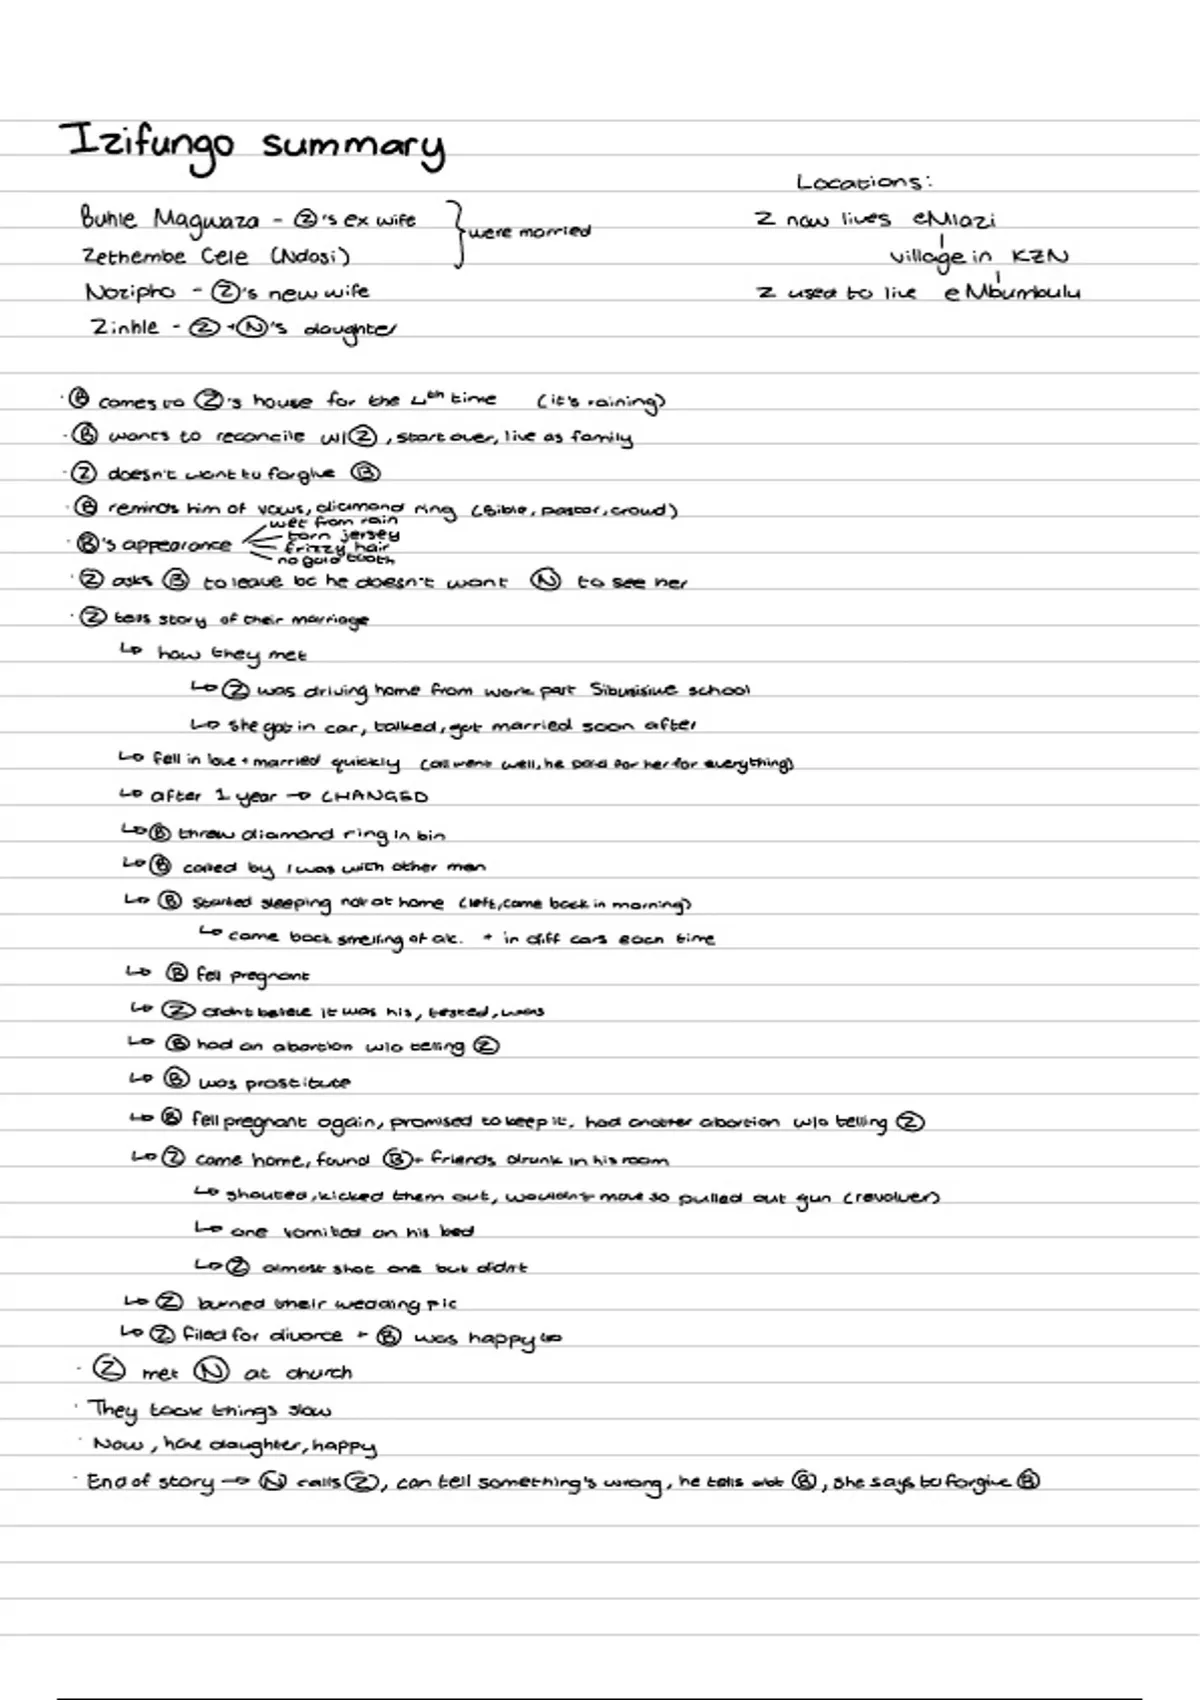 Izifungo summary
Locations:
Buhle Maguaza - Ⓩ's ex wife } were married
Z now lives eMlazi
Zethembe Cele (Ndosi)
village in KZN
Nozipho - Ⓩ's new wife
Z used to live eMbumbulu
Zinhle - Ⓩ + Ⓝ's daughter
· Ⓑ comes to Ⓩ's house for the 4th time (it's raining)
· Ⓑ wants to reconcile w/ Ⓩ, start over, live as family
· Ⓩ doesn't want to forgive Ⓑ
· Ⓑ reminds him of vows, diamond ring (Bible, pastor, crowd)
wet from rain
torn jersey
· Ⓑ's appearance
frizzy hair
no gold tooth
· Ⓩ asks Ⓑ to leave bc he doesn't want Ⓝ to see her
· Ⓩ tells story of their marriage
↳ how they met
↳ Ⓩ was driving home from work past Sibusisiwe school
↳ she got in car, talked, got married soon after
↳ fell in love + married quickly (all went well, he paid for her for everything)
↳ after 1 year → CHANGED
↳ Ⓑ threw diamond ring in bin
↳ Ⓑ called by / was with other men
↳ Ⓑ started sleeping not at home (left, came back in morning)
↳ came back smelling of alc. + in diff cars each time
↳ Ⓑ fell pregnant
↳ Ⓩ didnt believe it was his, tested, was
↳ Ⓑ had an abortion w/o telling Ⓩ
↳ Ⓑ was prostitute
↳ Ⓑ fell pregnant again, promised to keep it, had another abortion w/o telling Ⓩ
↳ Ⓩ came home, found Ⓑ + friends drunk in his room
↳ shouted, kicked them out, wouldn't move so pulled out gun (revolver)
↳ one vomited on his bed
↳ Ⓩ almost shot one but didn't
↳ Ⓩ burned their wedding pic
↳ Ⓩ filed for divorce + Ⓑ was happy
· Ⓩ met Ⓝ at church
· They took things slow
· Now, have daughter, happy
· End of story → Ⓝ calls Ⓩ, can tell something's wrong, he tells abt Ⓑ, she says to forgive Ⓑ